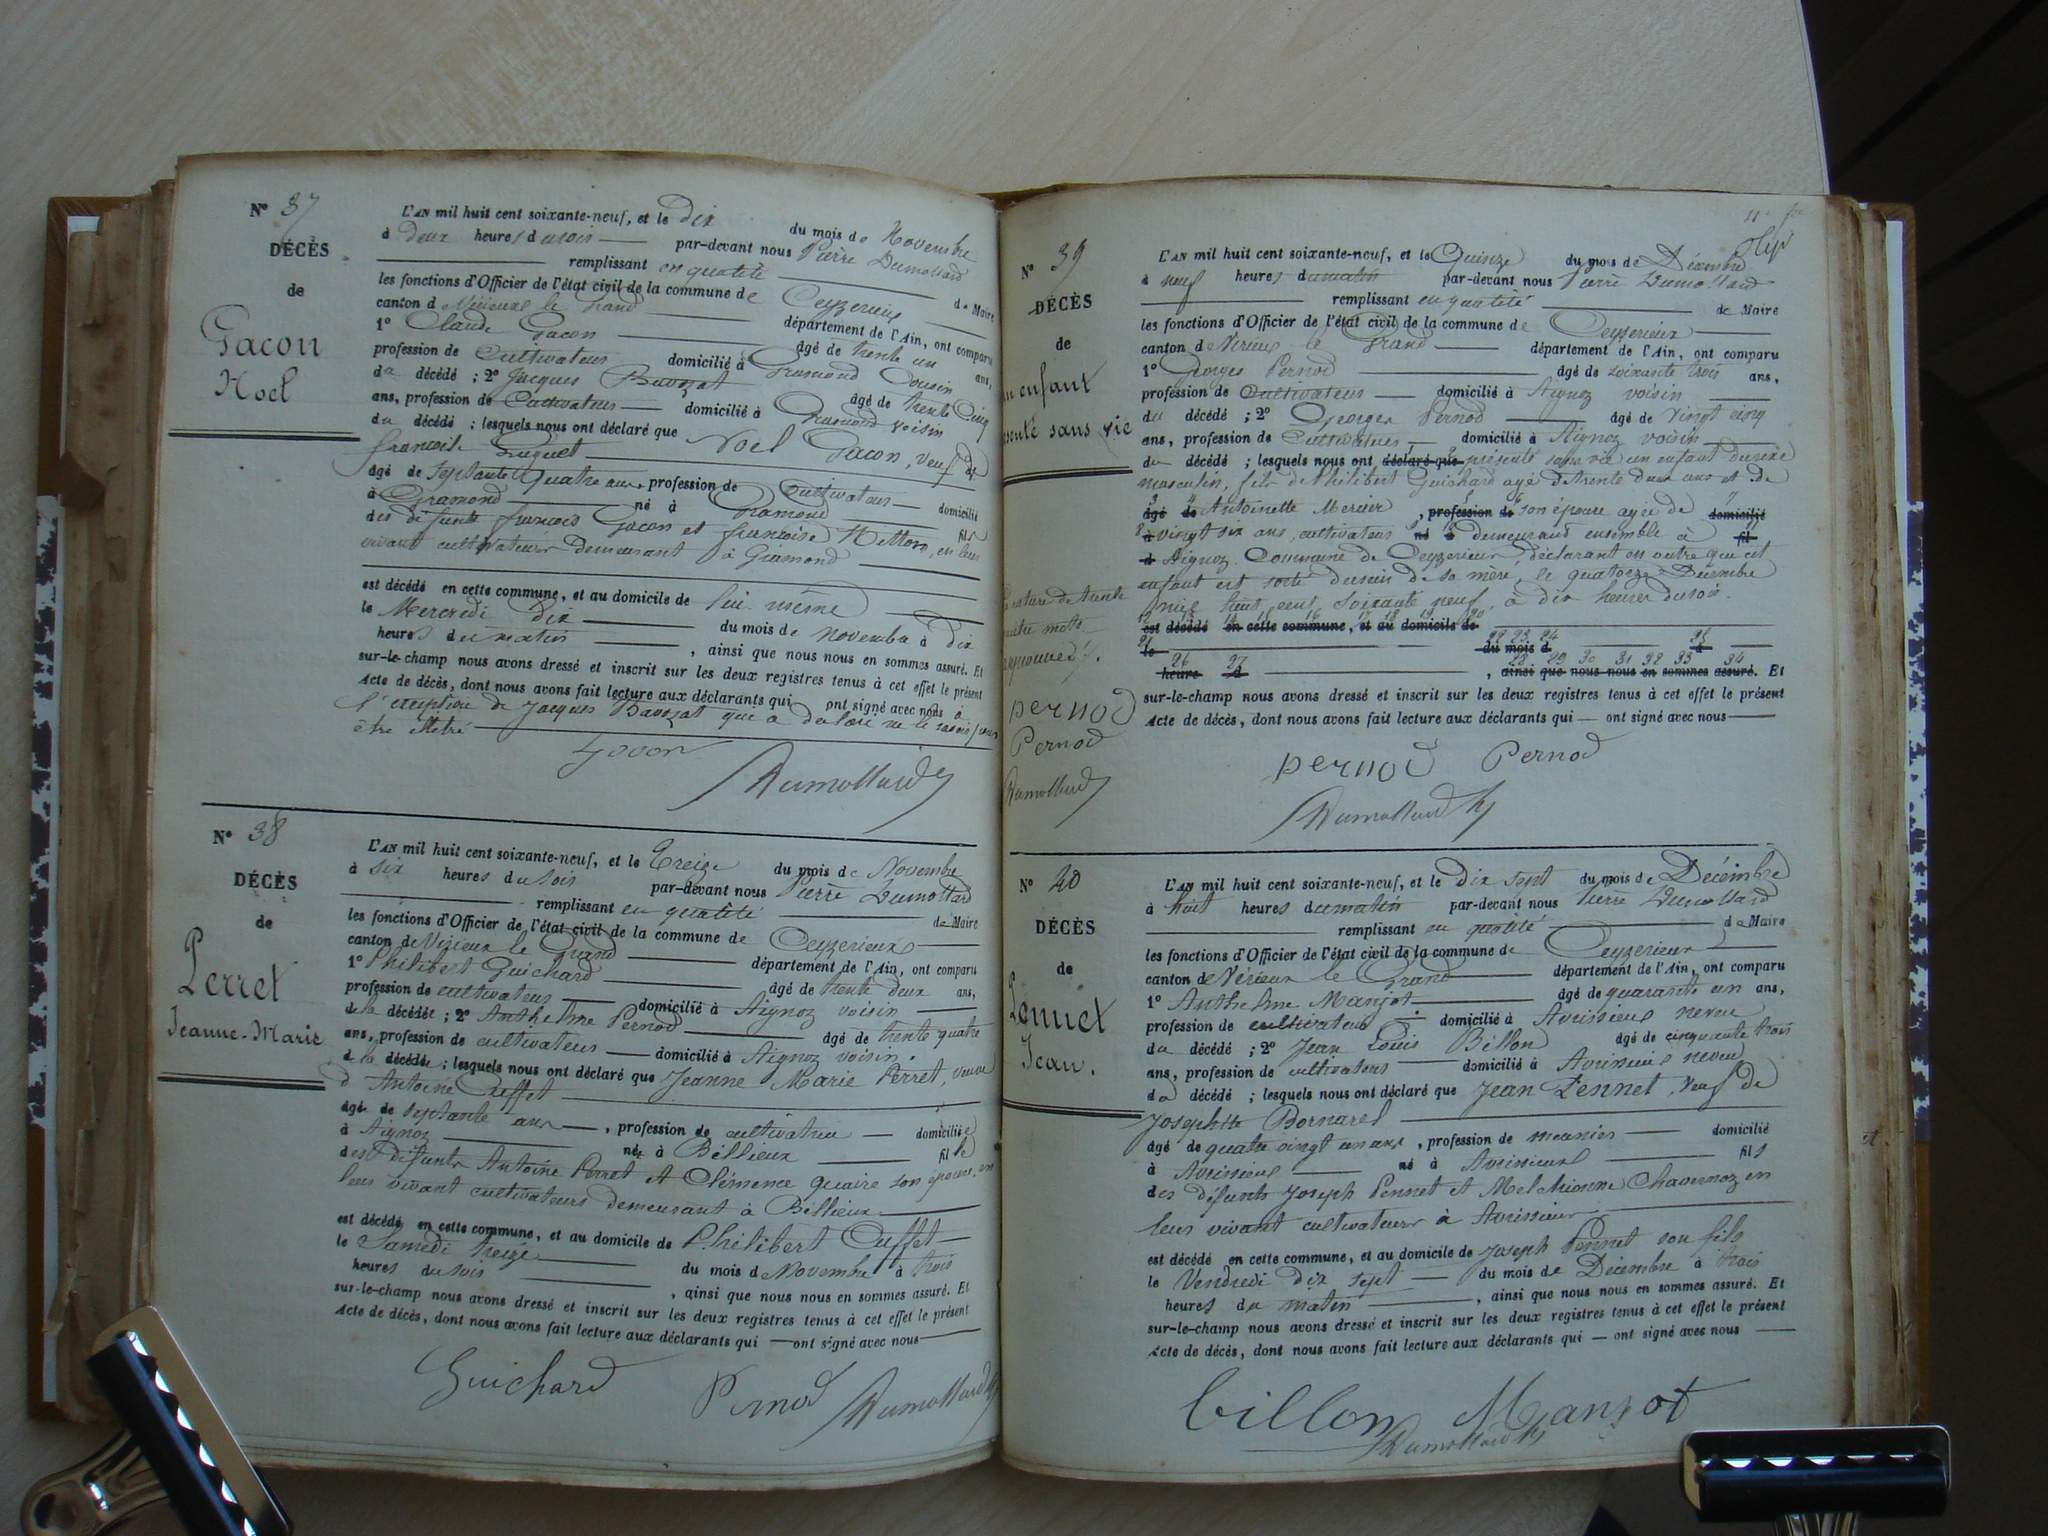 N° 37
DÉCÈS
de
Gacon
Noel
L'AN mil huit cent soixante-neuf, et le Dix du mois de Novembre
à deux heures du soir par-devant nous Pierre Dumollard
remplissant en qualité de Maire
les fonctions d'Officier de l'état civil de la commune de Ceyzerieux
canton de Virieux le Grand département de l'Ain, ont comparu
1° Claude Gacon âgé de trente un ans,
profession de Cultivateur domicilié à Gramond Cousin
du décédé ; 2° Jacques Bavozat âgé de trente Cinq
ans, profession de Cultivateur domicilié à Gramond voisin
du décédé ; lesquels nous ont déclaré que Noel Gacon, veuf de
françoise Huguet
âgé de septante quatre ans, profession de Cultivateur domicilié
à Gramond né à Gramond fils
des défunts françois Gacon et françoise Hetton, en leur
vivant cultivateurs demeurant à Gramond
est décédé en cette commune, et au domicile de lui même
le Mercredi dix du mois de novembre à dix
heures du matin, ainsi que nous nous en sommes assuré. Et
sur-le-champ nous avons dressé et inscrit sur les deux registres tenus à cet effet le présent
Acte de décès, dont nous avons fait lecture aux déclarants qui ont signé avec nous à
l'exception de Jacques Bavozat que a déclaré ne le savoir pour
être illetré
Gacon
Dumollard
N° 38
DÉCÈS
de
Perret
Jeanne-Marie
L'AN mil huit cent soixante-neuf, et le Treize du mois de Novembre
à six heures du soir par-devant nous Pierre Dumollard
remplissant en qualité de Maire
les fonctions d'Officier de l'état civil de la commune de Ceyzerieux
canton de Virieux le Grand département de l'Ain, ont comparu
1° Philibert Guichard âgé de trente deux ans,
profession de cultivateur domicilié à Aignoz voisin
de la décédée ; 2° Anthelme Pernod âgé de trente quatre
ans, profession de cultivateur domicilié à Aignoz voisin.
de la décédée ; lesquels nous ont déclaré que Jeanne Marie Perret, veuve
d'Antoine Cuffet
âgé de septante ans, profession de cultivatrice domiciliée
à Aignoz née à Béllieux fille
des défunts Antoine Perret et Clémence quaire son épouse, en
leur vivant cultivateurs demeurant à Béllieux
est décédé en cette commune, et au domicile de Philibert Cuffet
le Samedi treize du mois de Novembre à trois
heures du soir, ainsi que nous nous en sommes assuré. Et
sur-le-champ nous avons dressé et inscrit sur les deux registres tenus à cet effet le présent
Acte de décès, dont nous avons fait lecture aux déclarants qui ont signé avec nous
Guichard Pernod Dumollard
N° 39
DÉCÈS
de
un enfant
présenté sans vie
L'AN mil huit cent soixante-neuf, et le Quinze du mois de Décembre
à neuf heures du matin par-devant nous Pierre Dumollard
remplissant en qualité de Maire
les fonctions d'Officier de l'état civil de la commune de Ceyzerieux
canton de Virieux le Grand département de l'Ain, ont comparu
1° Georges Pernod âgé de soixante trois ans,
profession de Cultivateur domicilié à Aignoz voisin
du décédé ; 2° Georges Pernod âgé de vingt cinq
ans, profession de Cultivateur domicilié à Aignoz voisin
du décédé ; lesquels nous ont déclaré que présenté sans vie un enfant du sexe
masculin, fils de Philibert Guichard agé de trente deux ans et de
âgé de Antoinette Mercier, profession de son épouse agée de domicilié
à vingt six ans, cultivateurs né à demeurant ensemble à fil
d Aignoz Commune de Ceyzerieux déclarant en outre que cet
enfant est sorti du sein de sa mère, le quatorze Décembre
mil huit cent soixante neuf, à dix heures du soir.
est décédé en cette commune, et au domicile de
le du mois d à
heure d, ainsi que nous nous en sommes assuré. Et
sur-le-champ nous avons dressé et inscrit sur les deux registres tenus à cet effet le présent
Acte de décès, dont nous avons fait lecture aux déclarants qui ont signé avec nous
rature de trente
quatre mots
approuvés.
pernod
Pernod
Dumollard
pernod Pernod
Dumollard
N° 40
DÉCÈS
de
Pennet
Jean.
L'AN mil huit cent soixante-neuf, et le dix sept du mois de Décembre
à huit heures du matin par-devant nous Pierre Dumollard
remplissant en qualité de Maire
les fonctions d'Officier de l'état civil de la commune de Ceyzerieux
canton de Virieux le Grand département de l'Ain, ont comparu
1° Anthelme Manjot âgé de quarante un ans,
profession de cultivateur domicilié à Avrissieux neveu
du décédé ; 2° Jean Louis Billon âgé de cinquante trois
ans, profession de cultivateur domicilié à Avrissieux neveu
du décédé ; lesquels nous ont déclaré que Jean Pennet, veuf de
Josephte Bornarel
âgé de quatre vingt un ans, profession de meunier domicilié
à Avrissieux né à Avrissieux fils
des défunts Joseph Pennet et Melchionne Chavernoz en
leur vivant cultivateurs à Avrissieux
est décédé en cette commune, et au domicile de Joseph Pennet son fils
le Vendredi dix sept du mois de Décembre à trois
heures du matin, ainsi que nous nous en sommes assuré. Et
sur-le-champ nous avons dressé et inscrit sur les deux registres tenus à cet effet le présent
Acte de décès, dont nous avons fait lecture aux déclarants qui ont signé avec nous
billon Manjot
Dumollard